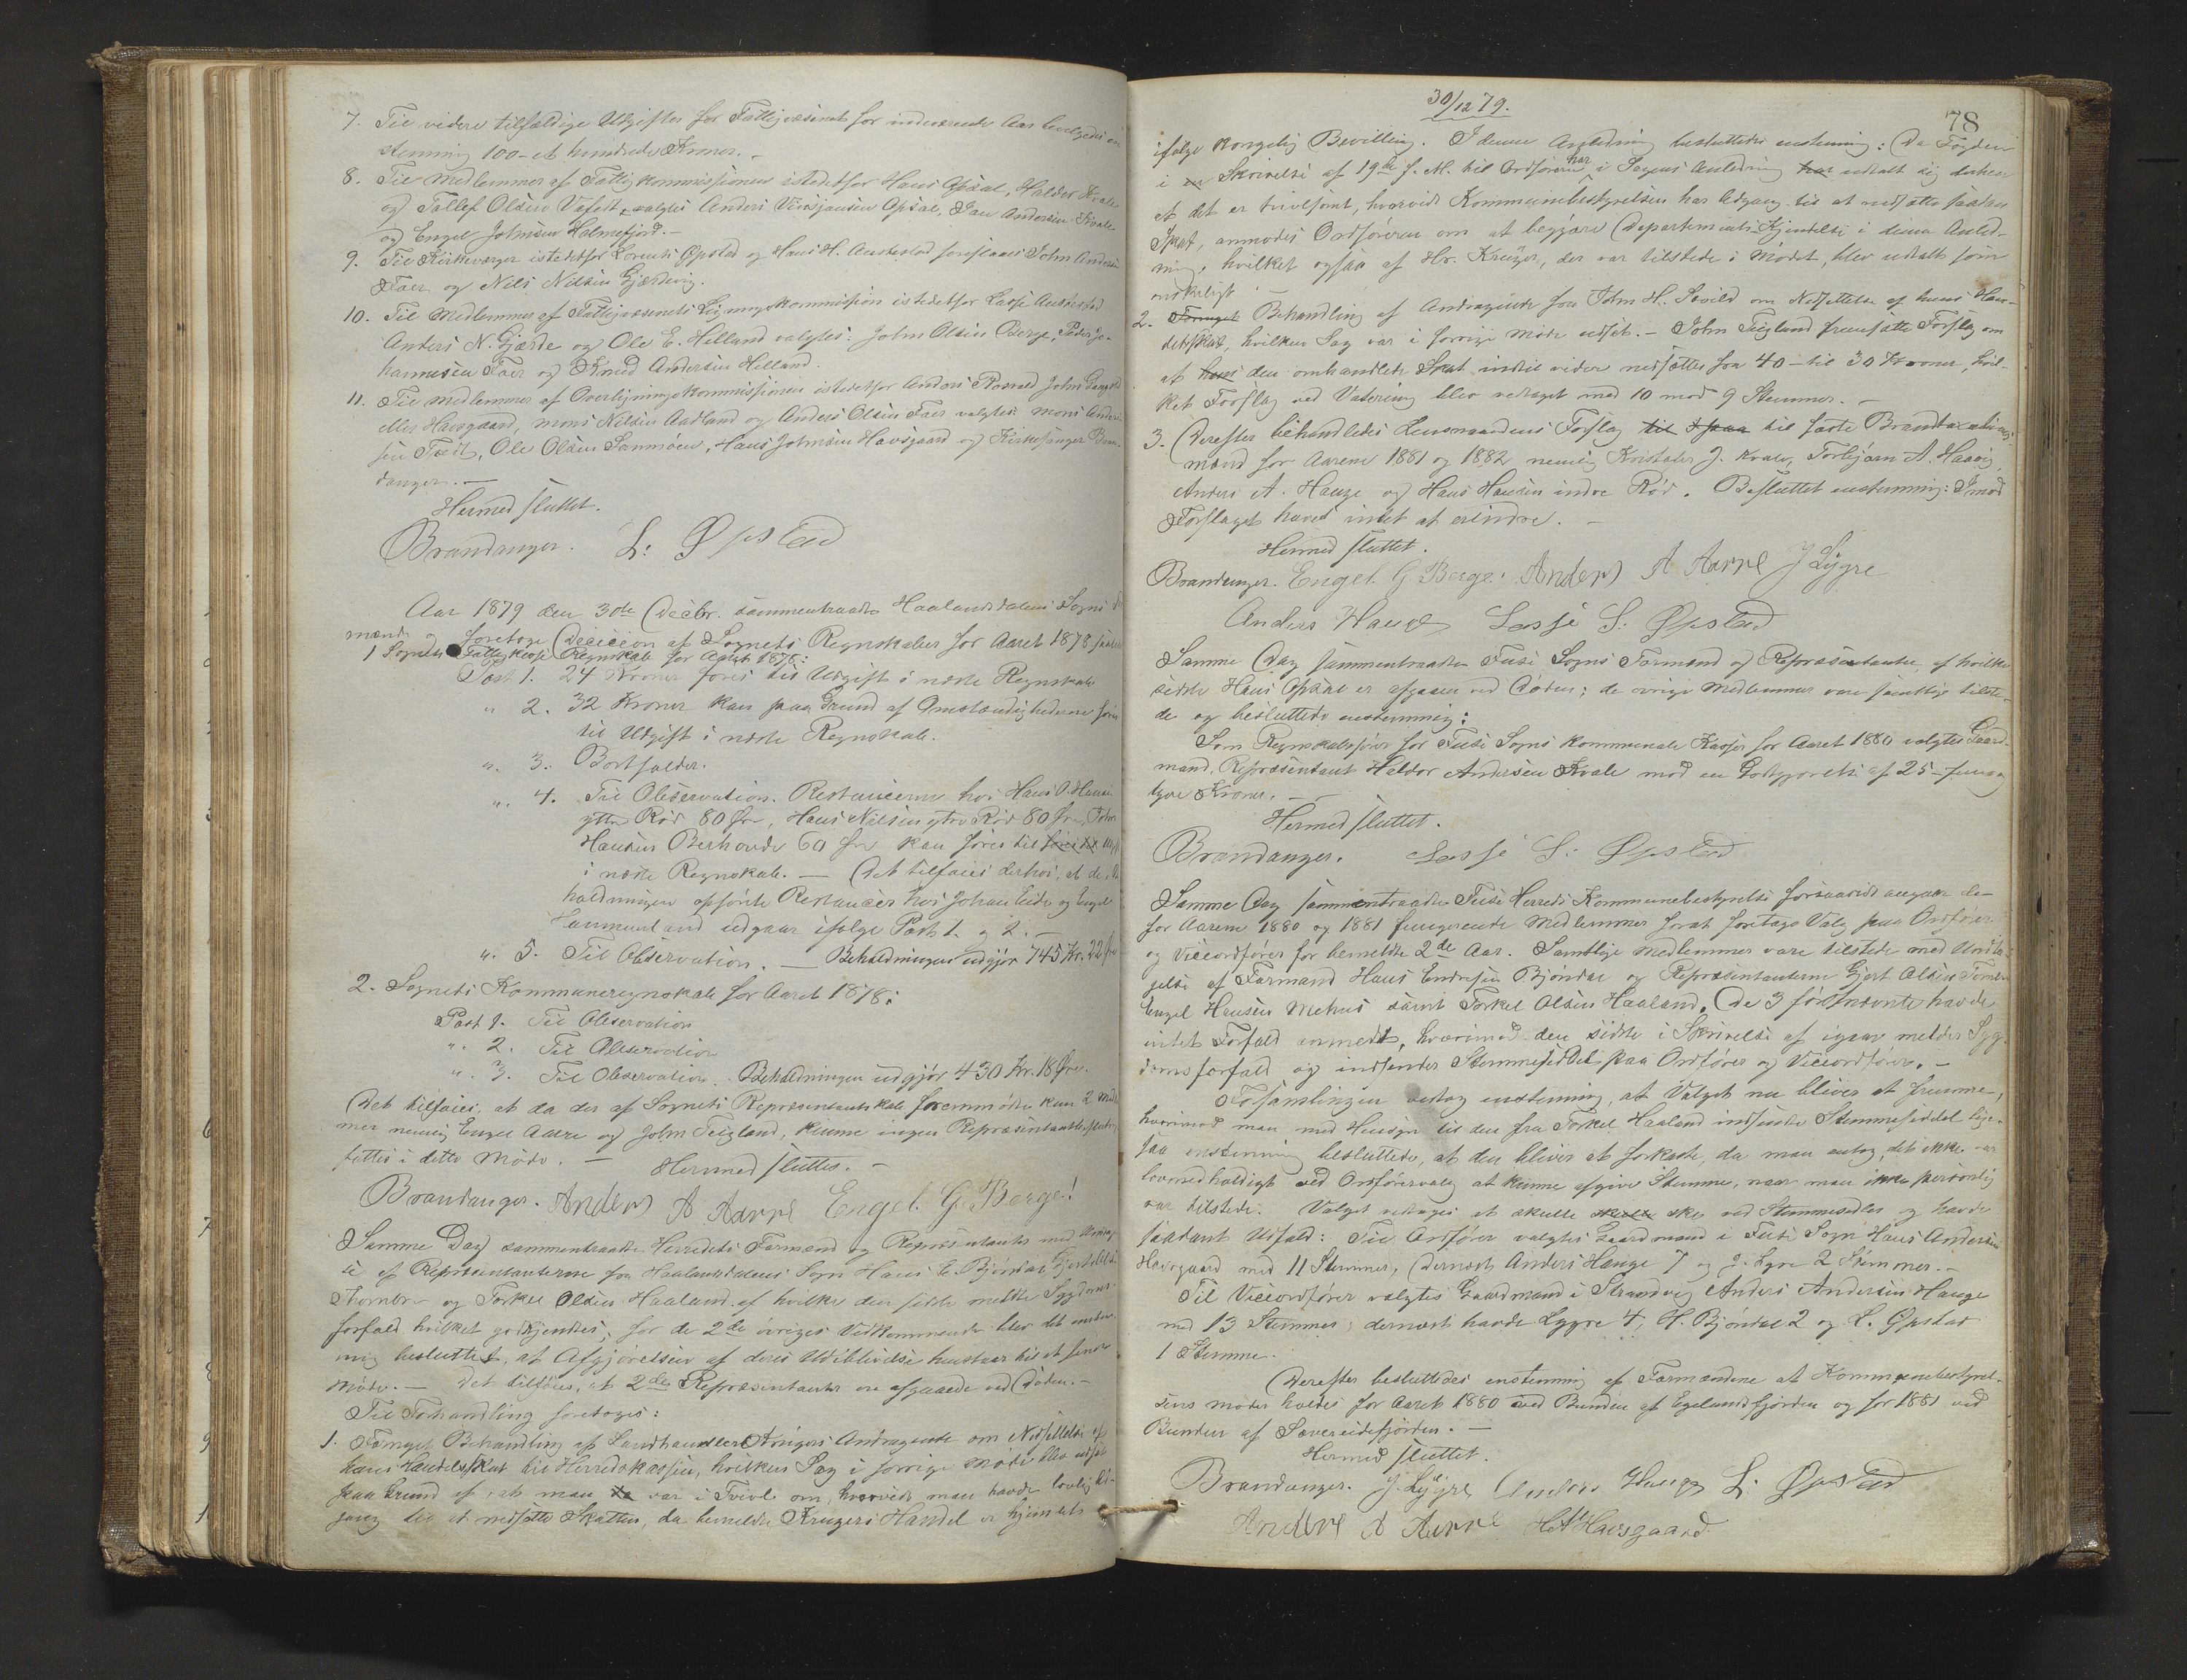 7. Til videre tilfældige Udgifter for Fattigvæsenet for indeværende Aar bevilgedes en-
stemmig 100 - et hundrede Kroner. -
8. Til Medlemmer af Fattigkommissionen istedetfor Hans Opsal, Haldor Kvale
og Tollef Olsen Vefest valgtes Anders Opsal, Jan Andersen Kvale
og Engel Johnsen Holmefjord. -
9. Til Kirkeværger istedetfor Lorents Øpstad og Hans H. Austestad foreslaaes John Andersen
Faer og Nils Nilsen Gjerdevig.
10. Til Medlemmer af Fattigvæsenets Ligningskommission istedetfor Lasse Austestad
Anders N. Gjerde og Ole E. Helland valgtes: John Olsen Berge, Peder Jo-
hannesen Faer og Knud Andersen Helland.
11. Til Medlemmer af Overligningskommissionen istedetfor Anders John
eller Havsgaard, Mons Nilsen Aadland og Anders Olsen Faer valgtes: Mons Ander-
sen Ole Olsen Sammøen, Hans Johnsen Havsgaard og Kirkesanger Bran-
danger. -
Hermed sluttet.
Brandanger. L: Øpstad
Aar 1879 den 30te Decbr. sammentraadte Haalandsdalens Sogns
mænd og foretoge Decision af Sognets Regnskaber for Aaret 1878 saaledes
1 Sognets Fattigkasse Regnskab for Aaret 1878:
Post 1. 24 Kroner føres til Udgift i næste Regnskab
" 2. 32 Kroner kan paa Grund af Omstændighederne føres
til Udgift i næste Regnskab.
" 3. Bortfalder.
" 4. Til Observation. Restancerne hos Hans O. Hansen
yttre Rød 80 Øre, Hans Nilsen ytre Rød 80 Øre, John
Hansen Berhovde 60 Øre kan føres til føres til
i næste Regnskab. - Det tilføies derhos, at de i Be-
holdningen opførte Restancer hos Johan Eide og Engel
Hammerland udgaar ifølge Post 1. og 2. -
" 5. Til Observation. - Beholdningen udgjør 745 Kr. 22 Øre
2. Sognets Kommuneregnskab for Aaret 1878:
Post 1. Til Observation
" 2. Til Observation
" 3. Til Observation. Beholdningen udgjør 430 Kr. 18 Øre.
Det tilføies, at da der af Sognets Repræsentantskab fremmødte kun 2 Med-
mer nemlig Engel Aarre og John Teigland, kunne ingen Repræsentant
fattes i dette Møde. - Hermed sluttes. -
Brandanger. Anders A Aarre Engel. G. Berge!
Samme Dag sammentraadte Herredets Formænd og Repræsentanter med Undtagel-
se af Repræsentanterne fra Haalandsdalens Sogn Hans E. Bjøndal Gjert Olsen
og Torkel Olsen Haaland, af hvilke den sidste meldte Sygdoms-
forfald hvilket godkjendtes; for de 2de øvriges Vedkommende blev det enstem-
mig besluttet, at Afgjørelsen af deres Udeblivelse henstaar til et senere
Møde. - Det tilføies, at 2de Repræsentanter ere afgaaede ved Døden. -
Til Forhandling foretoges:
1. Fornyet Behandling af Landhandler Krügers Andragende om Nedsettelse af
hans Handelsskat til Herredskassen, hvilken Sag i forrige Møde blev udsat
paa Grund af, at man var i Tvivl om, hvorvidt man havde lovlig Ad-
gang til at nedsætte Skatten, da bemeldte Krügers Handel er hjemlet
30/12 79.
78
ifølge kongelig Bevilling. I denne Anledning besluttedes enstemmig: Da Fogden
i en Skrivelse af 19de f. M. til Ordføreren har i Sagens Anledning har udtalt sig derhen
at det er tvivlsomt, hvorvidt Kommunebestyrelsen har Adgang til at nedsætte saadan
Skat, anmodes Ordføreren om at begjære Departements-Kjendelse i denne Anled-
ning, hvilket ogsaa af Hr. Krüger, der var tilstede i Mødet, blev udtalt som
ønskeligt
2. Fornyet Behandling af Andragende fra John H. Søvild om Nedsettelse af hans Han-
delsskat, hvilken Sag var i forrige Møde udsat. - John Teigland fremsatte Forslag om
at hans den omhandlede Skat indtil videre nedsættes fra 40 - til 30 Kroner, hvil-
ket Forslag ved Votering blev vedtaget med 10 mod 9 Stemmer. -
3. Derefter behandledes Lensmandens Forslag til til faste Brandtaxations-
mænd for Aarene 1881 og 1882 nemlig Kristofer J. Kvale, Torbjørn A. Haavig,
Anders A. Hauge og Hans Hansen indre Rød. Besluttet enstemmig: Imod
Forslaget haves intet at erindre. -
Hermed sluttet.
Brandanger. Engel. G. Berge. Anders A Aarre J Lygre
Anders Hauge Lasse L: Øpstad
Samme Dag sammentraadte Fuse Sogns Formænd og Repræsentanter, af hvilke
sidste Hans Opsal er afgaaen ved Døden; de øvrige Medlemmer vare samtlige tilste-
de og besluttede enstemmig:
Som Regnskabsfører for Fuse Sogns kommunale Kasser for Aaret 1880 valgtes Gaard-
mand, Repræsentant Haldor Andersen Kvale mod en Godtgjørelse af 25 - fem og
tyve Kroner. -
Hermed sluttet.
Brandanger. Lasse L: Øpstad
Samme Dag sammentraadte Fuse Herreds Kommunebestyrelse forsaavidt angaar de
for Aarene 1880 og 1881 fungerende Medlemmer forat foretage Valg paa Ordfører
og Viceordfører for bemeldte 2de Aar. Samtlige Medlemmer vare tilstede med Undta-
gelse af Formand Hans Endresen Bjøndal og Repræsentanterne Gjert Olsen
Engel Hansen Mehus samt Torkel Olsen Haaland. De 3 førstnævnte havde
intet Forfald anmeldt, hvorimod den sidste i Skrivelse af igaar melder Syg-
domsforfald og indsender Stemmeseddel paa Ordfører og Viceordfører. -
Forsamlingen vedtog enstemmig, at Valget nu bliver at fremme,
hvorimod man med Hensyn til den fra Torkel Haaland indsendte Stemmeseddel lige-
saa enstemmig besluttede, at den bliver at forkaste, da man antog, det ikke var
lovmedholdigt ved Ordførervalg at kunne afgive Stemme, naar man ikke personlig
var tilstede. Valget vedtoges at skulle skulle ske ved Stemmesedler og havde
saadant Udfald: Til Ordfører valgtes Gaardmand i Fuse Sogn Hans Andersen
Havsgaard med 11 Stemmer, dernæst Anders Hauge 7 og J. Lygre 2 Stemmer. -
Til Viceordfører valgtes Gaardmand i Strandvig Anders Andersen Hauge
med 13 Stemmer; dernæst havde Lygre 4, H. Bjøndal 2 og L. Øpstad
1 Stemme.
Derefter besluttedes enstemmig af Formændene at Kommunebestyrel-
sens Møder holdes for Aaret 1880 ved Bunden af Egelandsfjorden og for 1881 ved
Bunden af Sævereidefjorden. -
Hermed sluttet.
Brandanger. J. Lygre Anders Hauge L: Øpstad
Anders A Aarre H A Havsgaard.